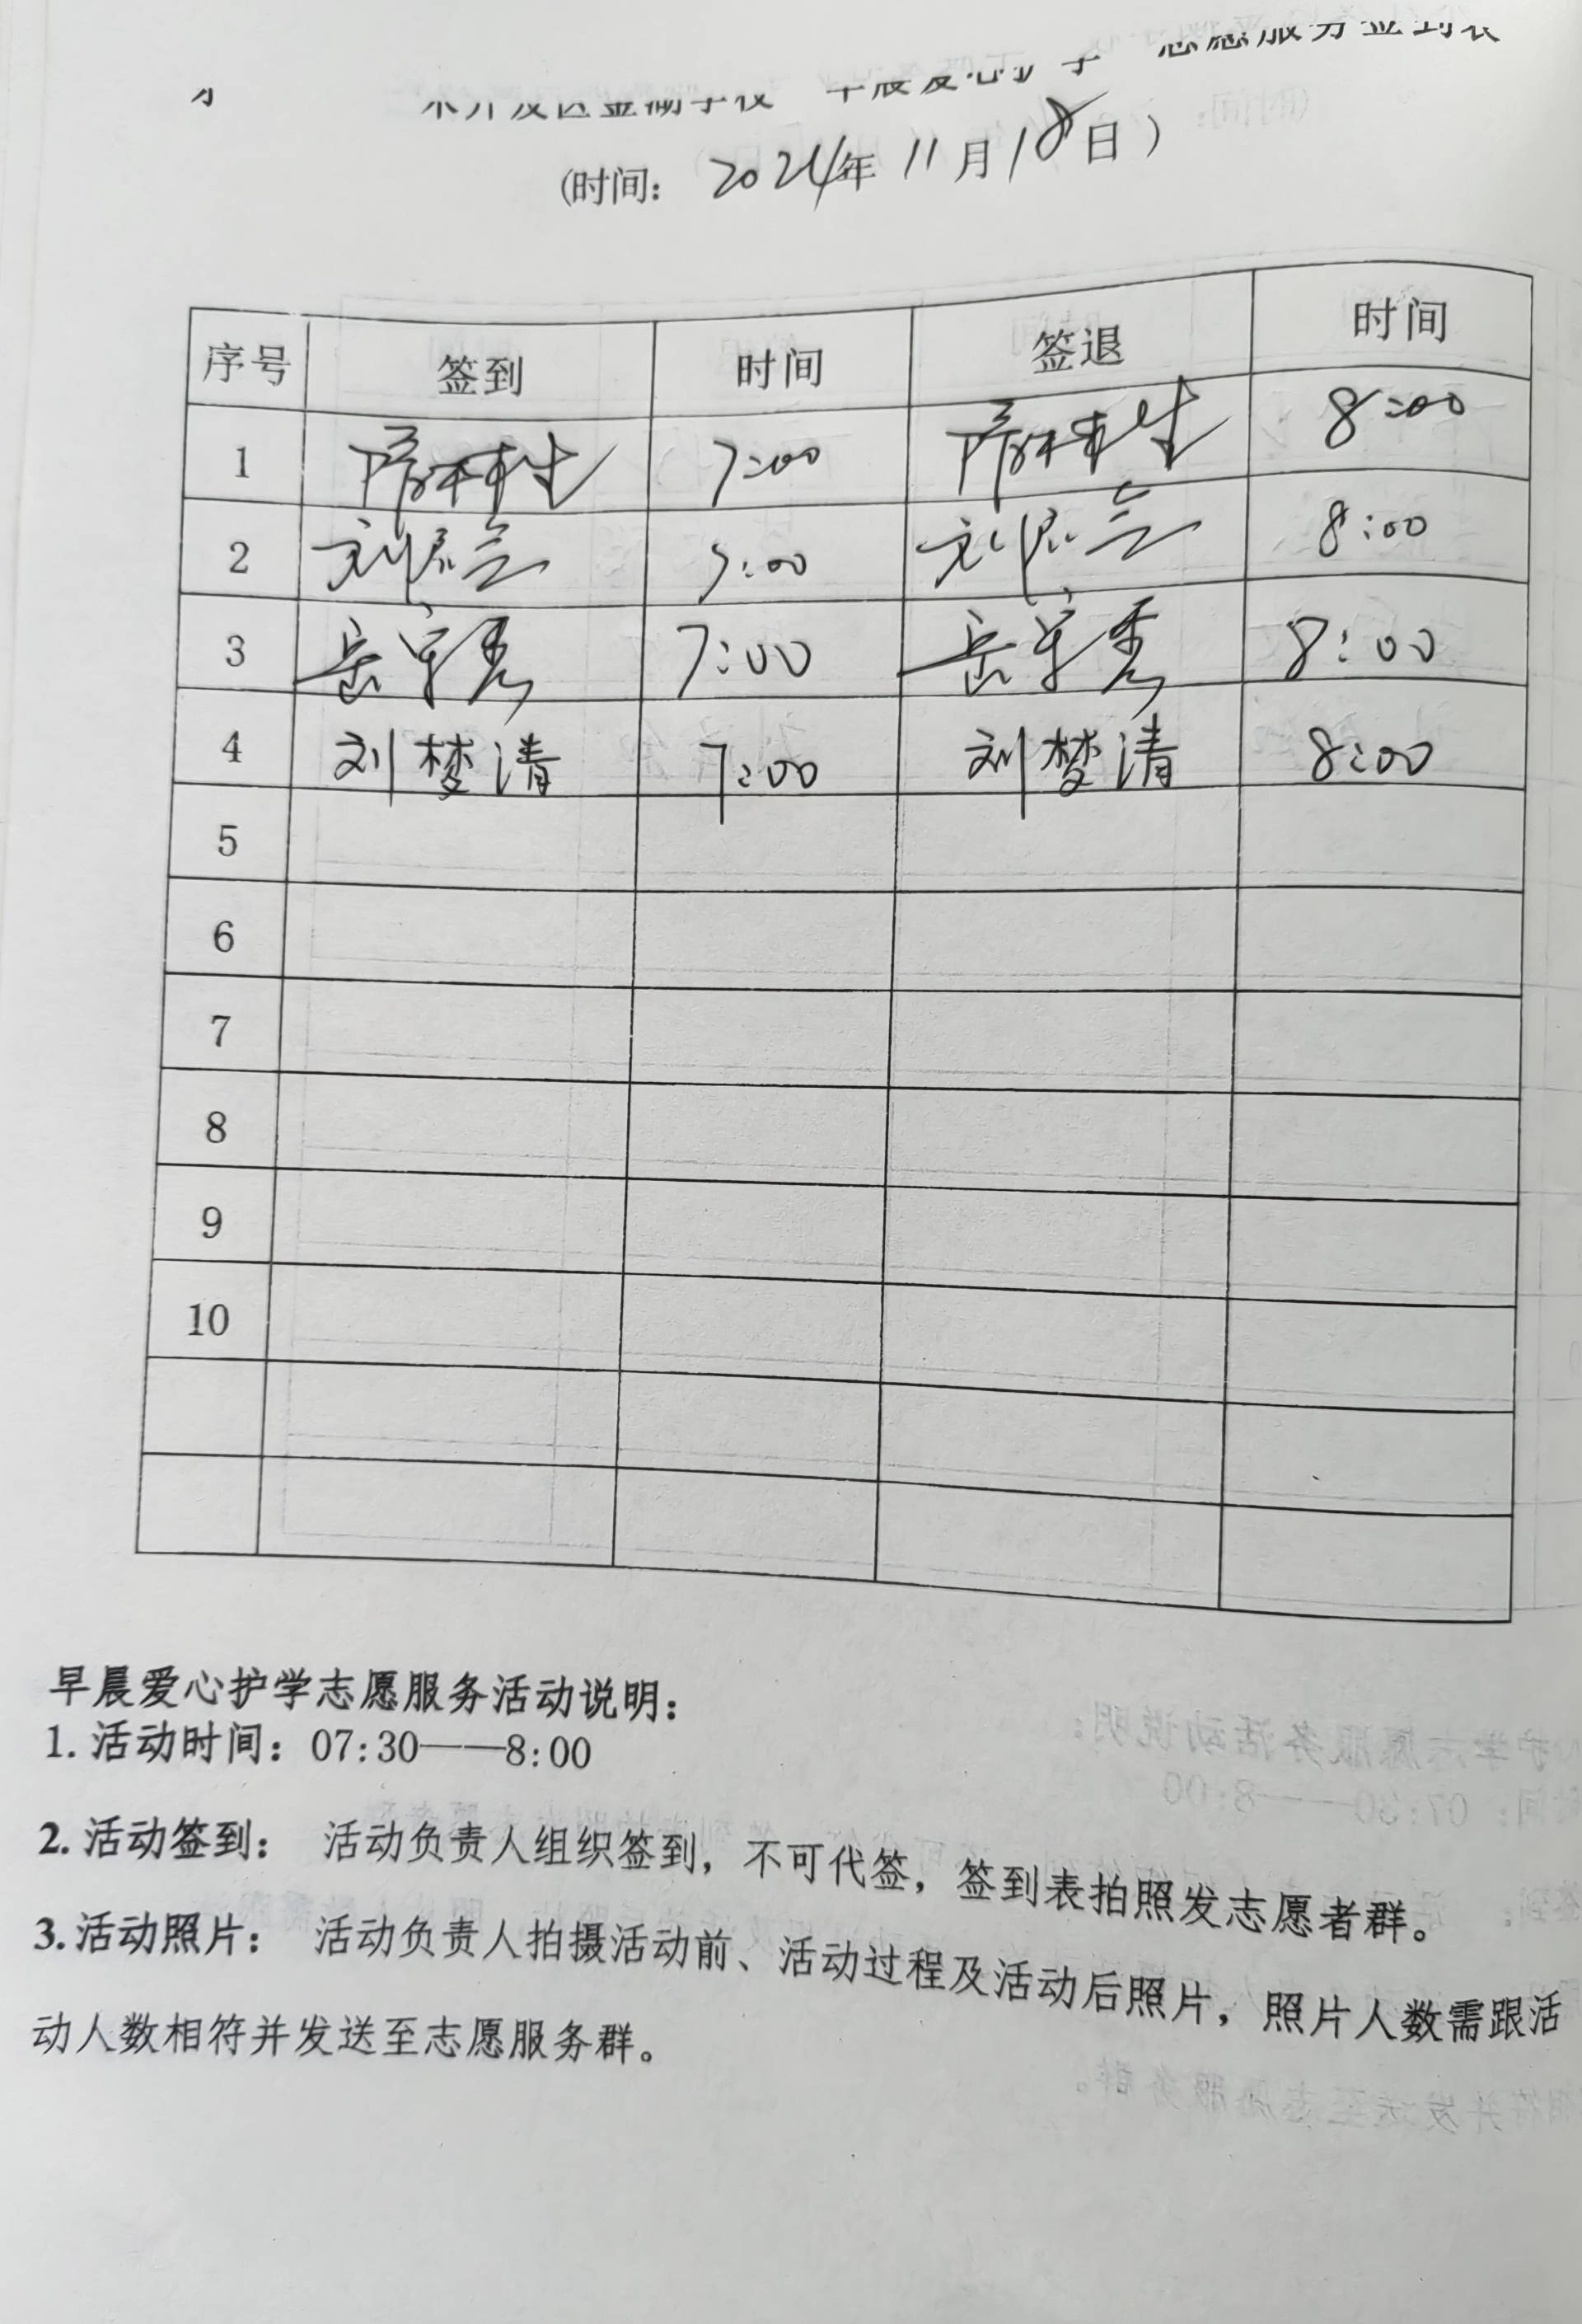 术开发区金湖学校 早晨爱心护学 志愿服务签到表
(时间: 2024年11月18日)
序号 签到 时间 签退 时间
1 7:00 8:00
2 刘 7:00 刘 8:00
3 岳 秀 7:00 岳 秀 8:00
4 刘梦清 7:00 刘梦清 8:00
5
6
7
8
9
10
早晨爱心护学志愿服务活动说明:
1. 活动时间: 07:30——8:00
2. 活动签到: 活动负责人组织签到, 不可代签, 签到表拍照发志愿者群。
3. 活动照片: 活动负责人拍摄活动前、活动过程及活动后照片, 照片人数需跟活
动人数相符并发送至志愿服务群。